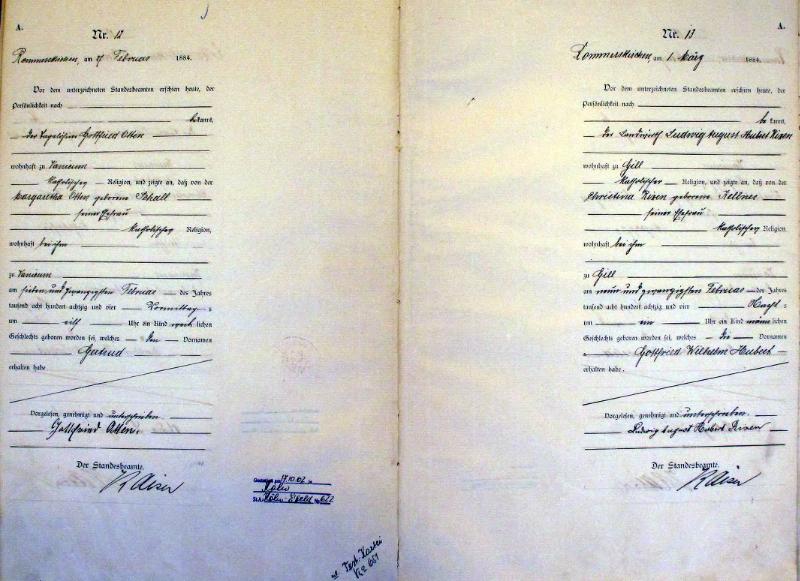 A.
Nr. 12
Rommerskirchen, am 27 Februar 1884.
Vor dem unterzeichneten Standesbeamten erschien heute, der
Persönlichkeit nach
bekannt,
der Tagelöhner Gottfried Otten
wohnhaft zu Vanikum
katholischer Religion, und zeigte an, daß von der
Margaretha Otten geborene Schall
seiner Ehefrau
katholischer Religion,
wohnhaft bei ihm
zu Vanikum
am sieben und zwanzigsten Februar des Jahres
tausend acht hundert achtzig und vier Vormittags
um elf Uhr ein Kind weiblichen
Geschlechts geboren worden sei, welches den Vornamen
Gertrud
erhalten habe
Vorgelesen, genehmigt und unterschrieben
Gottfried Otten.
Der Standesbeamte.
Kaiser
17.10.02
Köln
Köln
St. Test. Kartei
A.
Nr. 13
Rommerskirchen, am 1 März 1884.
Vor dem unterzeichneten Standesbeamten erschien heute, der
Persönlichkeit nach
bekannt,
der Landwirth Ludwig August Hubert
wohnhaft zu Gill
katholischer Religion, und zeigte an, daß von der
Christina geborene Kellner
seiner Ehefrau
katholischer Religion,
wohnhaft bei ihm
zu Gill
am neun und zwanzigsten Februar des Jahres
tausend acht hundert achtzig und vier Nachts
um ein Uhr ein Kind männlichen
Geschlechts geboren worden sei, welches die Vornamen
Gottfried Wilhelm Hubert
erhalten habe.
Vorgelesen, genehmigt und unterschrieben
Ludwig August Hubert
Der Standesbeamte.
Kaiser